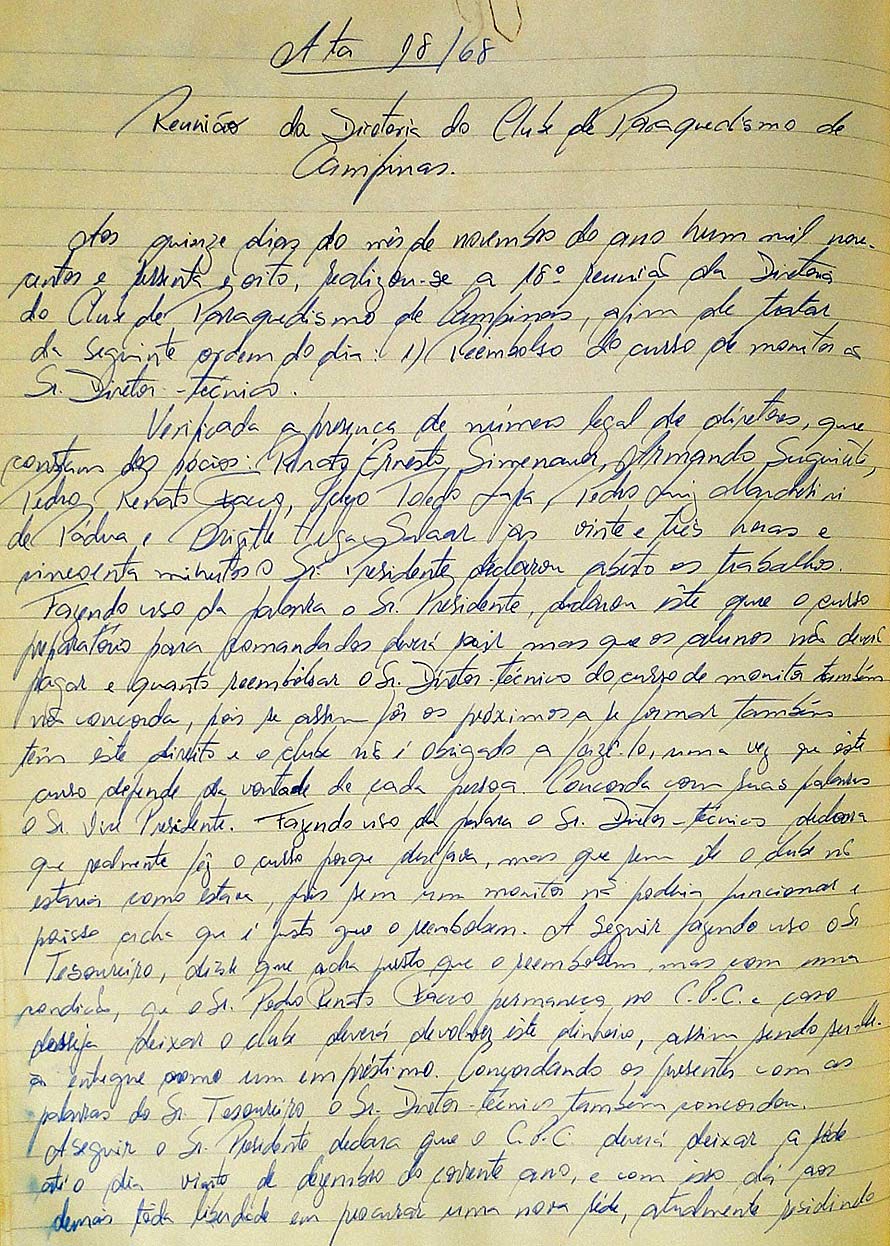 Ata 18/68
Reunião da Diretoria do Clube de Paraquedismo de
Campinas.
Aos quinze dias do mês de novembro do ano hum mil nove-
centos e sessenta e oito, realizou-se a 18º reunião da Diretoria
do Clube de Paraquedismo de Campinas, afim de tratar
da seguinte ordem do dia: 1) Reembolso do curso de monitor ao
Sr. Diretor-técnico.
Verificada a presença de número legal de diretores, que
constam dos sócios: Renato Ernesto Simenauer, Armando
Pedro Renato Toledo Pedro Luiz
de Pádua e às vinte e três horas e
cincoenta minutos o Sr. Presidente declarou aberto os trabalhos.
Fazendo uso da palavra o Sr. Presidente, declarou êste que o curso
preparatório para comandados deverá sair mas que os alunos não deverá
pagar e quanto reembolsar o Sr. Diretor-técnico do curso de monitor também
não concorda, pois se assim fôr os próximos a se formar também
têm êste direito e o clube não é obrigado a fazê-lo, uma vez que êste
curso depende da vontade de cada pessoa. Concorda com suas palavras
o Sr. Vice Presidente. Fazendo uso da palavra o Sr. Diretor-técnico declara
que realmente fêz o curso porque desejava, mas que sem êle o clube não
estaria como estava, pois sem um monitor não poderia funcionar e
acha que é justo que o reembolsem. A seguir fazendo uso o Sr
Tesoureiro, disse que acha justo que o reembolsem, mas com uma
condição, que o Sr. Pedro Renato permaneça no C.P.C. e caso
desseja deixar o clube deverá devolver êste dinheiro, assim sendo
entregue como um empréstimo. Concordando os presentes com as
palavras do Sr. Tesoureiro o Sr. Diretor-técnico também concordou.
A seguir o Sr. Presidente declara que o C.P.C. deverá deixar a séde
até o dia vinte de dezembro do corrente ano, e com isso dá aos
demais toda liberdade em procurar uma nova séde, atualmente residindo